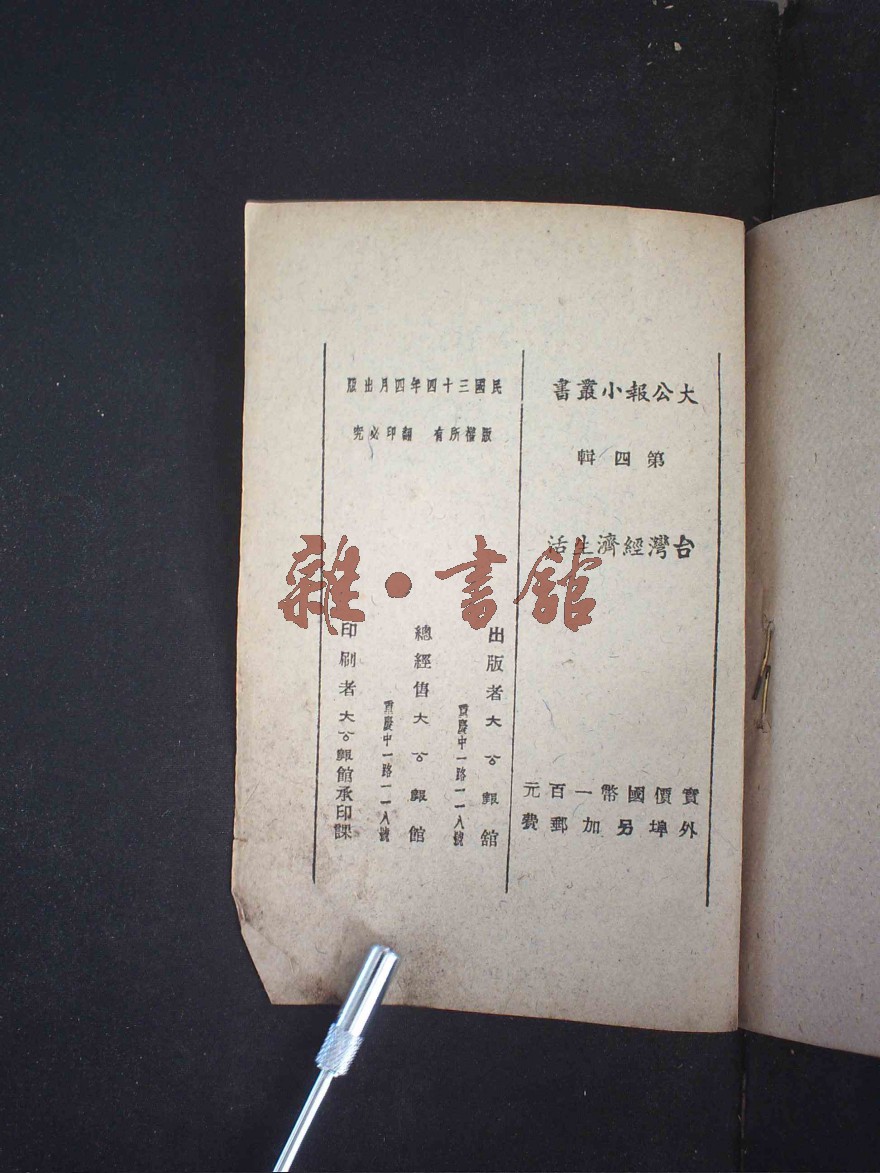 大公報小叢書
第四輯
台灣經濟生活
實價國幣一百元
外埠另加郵費
民國三十四年四月出版
版權所有 翻印必究
出版者 大公報館
重慶中一路一一八號
總經售 大公報館
重慶中一路一一八號
印刷者 大公報館承印課
雜·書館